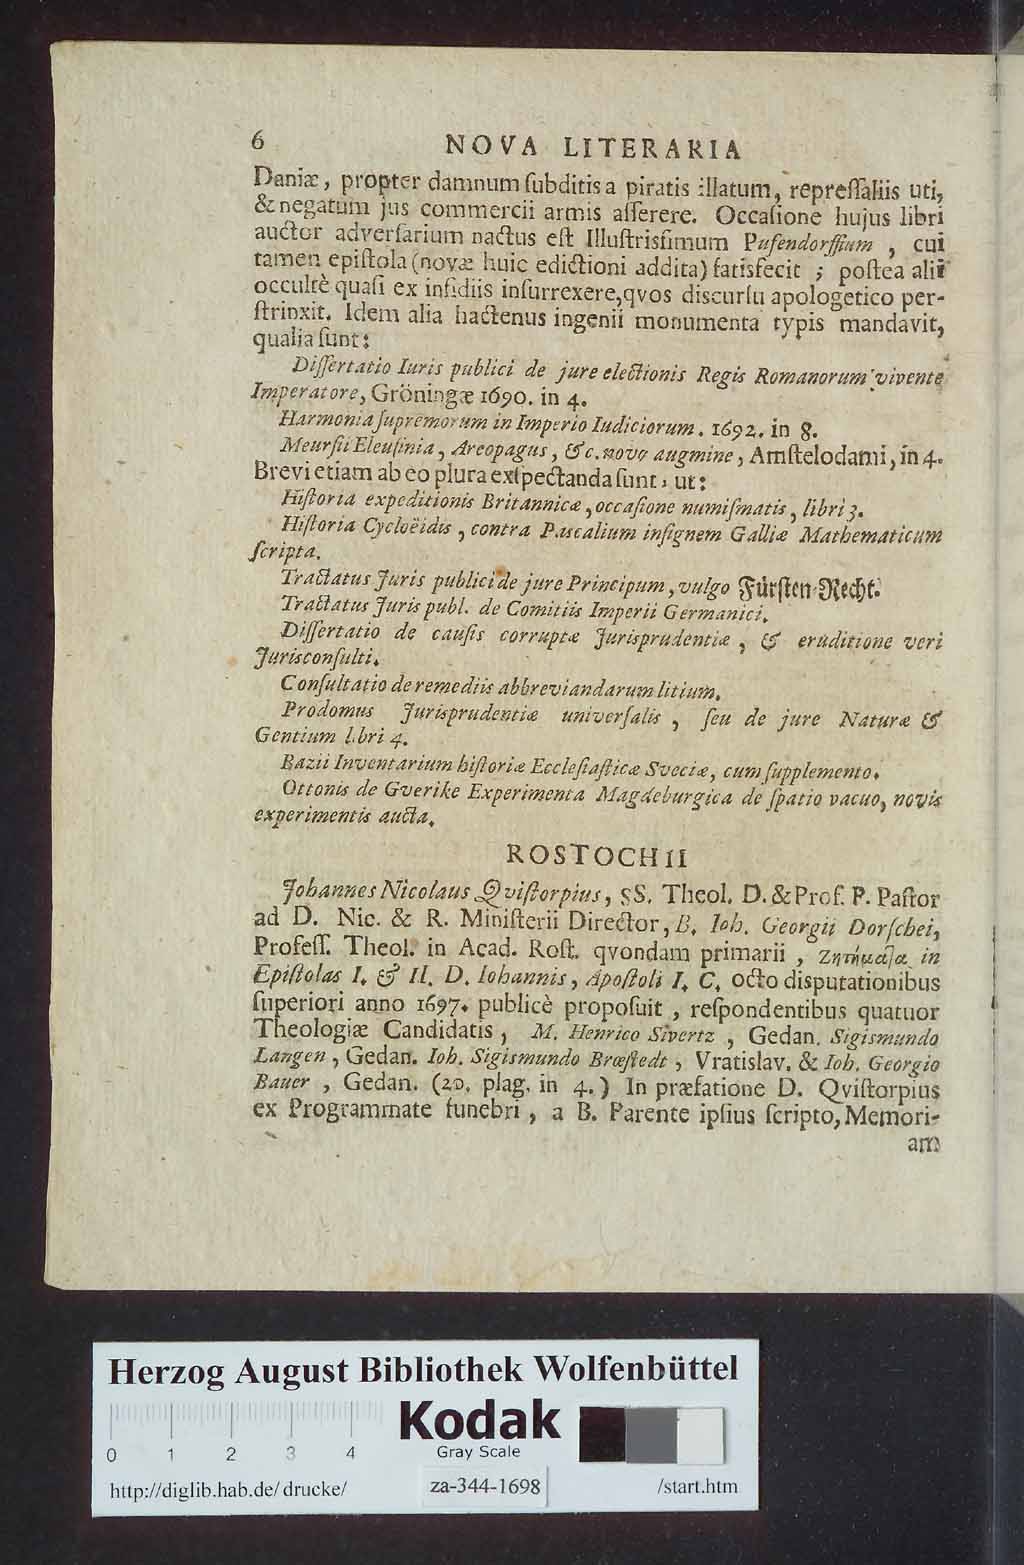 6 NOVA LITERARIA
Daniæ, propter damnum ſubditis a piratis illatum, repreſſaliis uti,
& negatum jus commercii armis aſſerere. Occaſione hujus libri
auctor adverſarium nactus eſt Illuſtrisſimum Pufendorffium, cui
tamen epiſtola (novæ huic edictioni addita) fatisfecit ; poſtea alii
occultè quaſi ex inſidiis inſurrexere, qvos discurſu apologetico per-
ſtrinxit. Idem alia hactenus ingenii monumenta typis mandavit,
qualia ſunt:
Diſſertatio Iuris publici de jure electionis Regis Romanorum vivente
Imperatore, Gröningæ 1690. in 4.
Harmonia ſupremorum in Imperio Iudiciorum. 1692. in 8.
Meurſii Eleuſinia, Areopagus, &c. novo augmine, Amſtelodami, in 4.
Brevi etiam ab eo plura exſpectanda ſunt, ut:
Hiſtoria expeditionis Britannicæ, occaſione numiſmatis, libri 3.
Hiſtoria Cycloëidis, contra Pascalium inſignem Galliæ Mathematicum
ſcripta.
Tractatus Juris publici de jure Principum, vulgo Fürſten-Recht.
Tractatus Juris publ. de Comitiis Imperii Germanici.
Diſſertatio de cauſis corruptæ Jurisprudentiæ, & eruditione veri
Jurisconſulti.
Conſultatio de remediis abbreviandarum litium.
Prodomus Jurisprudentiæ univerſalis, ſeu de jure Naturæ &
Gentium libri 4.
Bazii Inventarium hiſtoriæ Eccleſiaſticæ Sveciæ, cum ſupplemento.
Ottonis de Gverike Experimenta Magdeburgica de ſpatio vacuo, novis
experimentis aucta.
ROSTOCHII
Johannes Nicolaus Qviſtorpius, SS. Theol. D. & Prof. P. Paſtor
ad D. Nic. & R. Miniſterii Director, B. Ioh. Georgii Dorſchei,
Profeſſ. Theol. in Acad. Roſt. qvondam primarii, Ζητήμαϊα in
Epiſtolas I. & II. D. Iohannis, Apoſtoli I. C. octo disputationibus
ſuperiori anno 1697. publicè propoſuit, reſpondentibus quatuor
Theologiæ Candidatis, M. Henrico Sivertz, Gedan. Sigismundo
Langen, Gedan. Ioh. Sigismundo Brœſtedt, Vratislav. & Ioh. Georgio
Bauer, Gedan. (20. plag. in 4.) In præfatione D. Qviſtorpius
ex Programmate funebri, a B. Parente ipſius ſcripto, Memori-
am
Herzog August Bibliothek Wolfenbüttel
Kodak
Gray Scale
0 1 2 3 4
http://diglib.hab.de/drucke/ za-344-1698 /start.htm